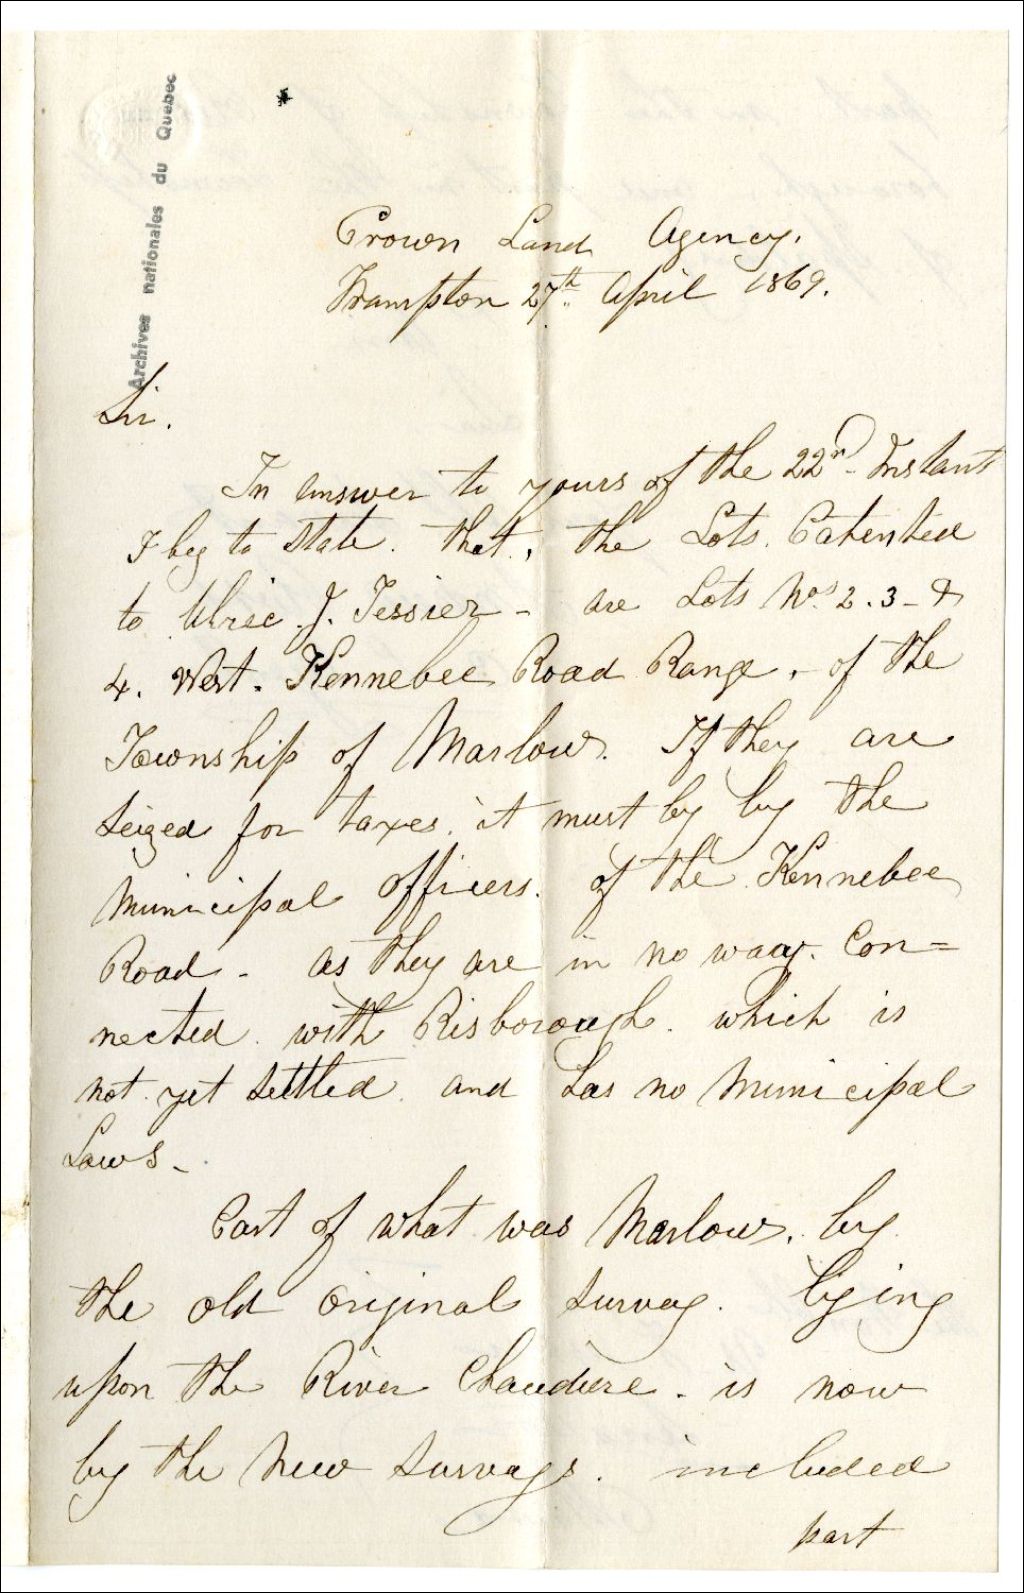 Archives nationales du Quebec
Crown Land Agency.
Frampton 27th April 1869.
Sir.
In answer to yours of the 22nd Instant
I beg to state. that, the Lots. Patented
to Ulric. J. Tessier - are Lots Nos 2. 3 - &
4. West. Kennebec Road Range. - of the
Township of Marlow. If they are
seized for taxes. it must by by the
Municipal officers. of the Kennebec
Road - as they are in no way. Con=
nected. with Risborough. which is
not. yet settled. and has no Municipal
Laws -
Part of what was Marlow. by
the old original survey. lying
upon the River Chaudiere - is now
by the New surveys. included
part